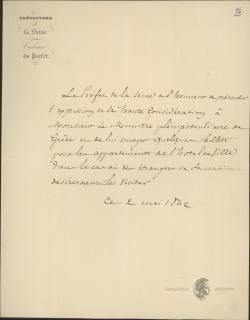 16
PRÉFECTURE
de
la Seine.
Cabinet
du Préfet.
Le Préfet de la Seine a l'honneur de présenter
l'expression de sa haute Considération à
Monsieur le Ministre plénipotentiaire de
Grèce et de lui envoyer quelques billets
pour les appartements de l'Hotel de Ville
Dans le cas où des étrangers de sa nation
désireraient les visiter
Ce 2 mai